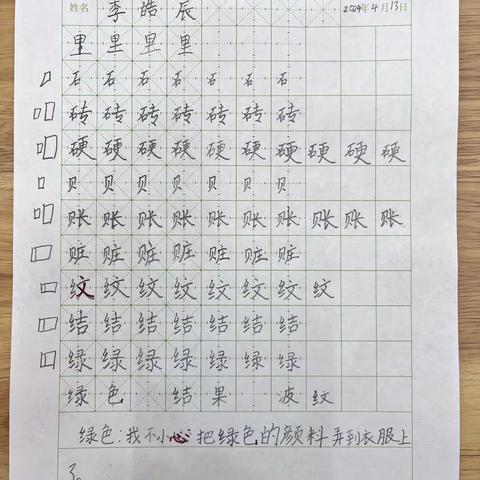 姓名 李皓辰 2024年4月13日
里里里里
石石石石石石石
砖砖砖砖砖砖砖
硬硬硬硬硬硬硬硬硬硬
贝贝贝贝贝贝贝
账账账账账账账账账账
赃赃赃赃赃赃赃
纹纹纹纹纹纹纹纹
结结结结结结结
绿绿绿绿绿绿绿
绿色 结果 波纹
绿色:我不小心把绿色的颜料弄到衣服上
了。